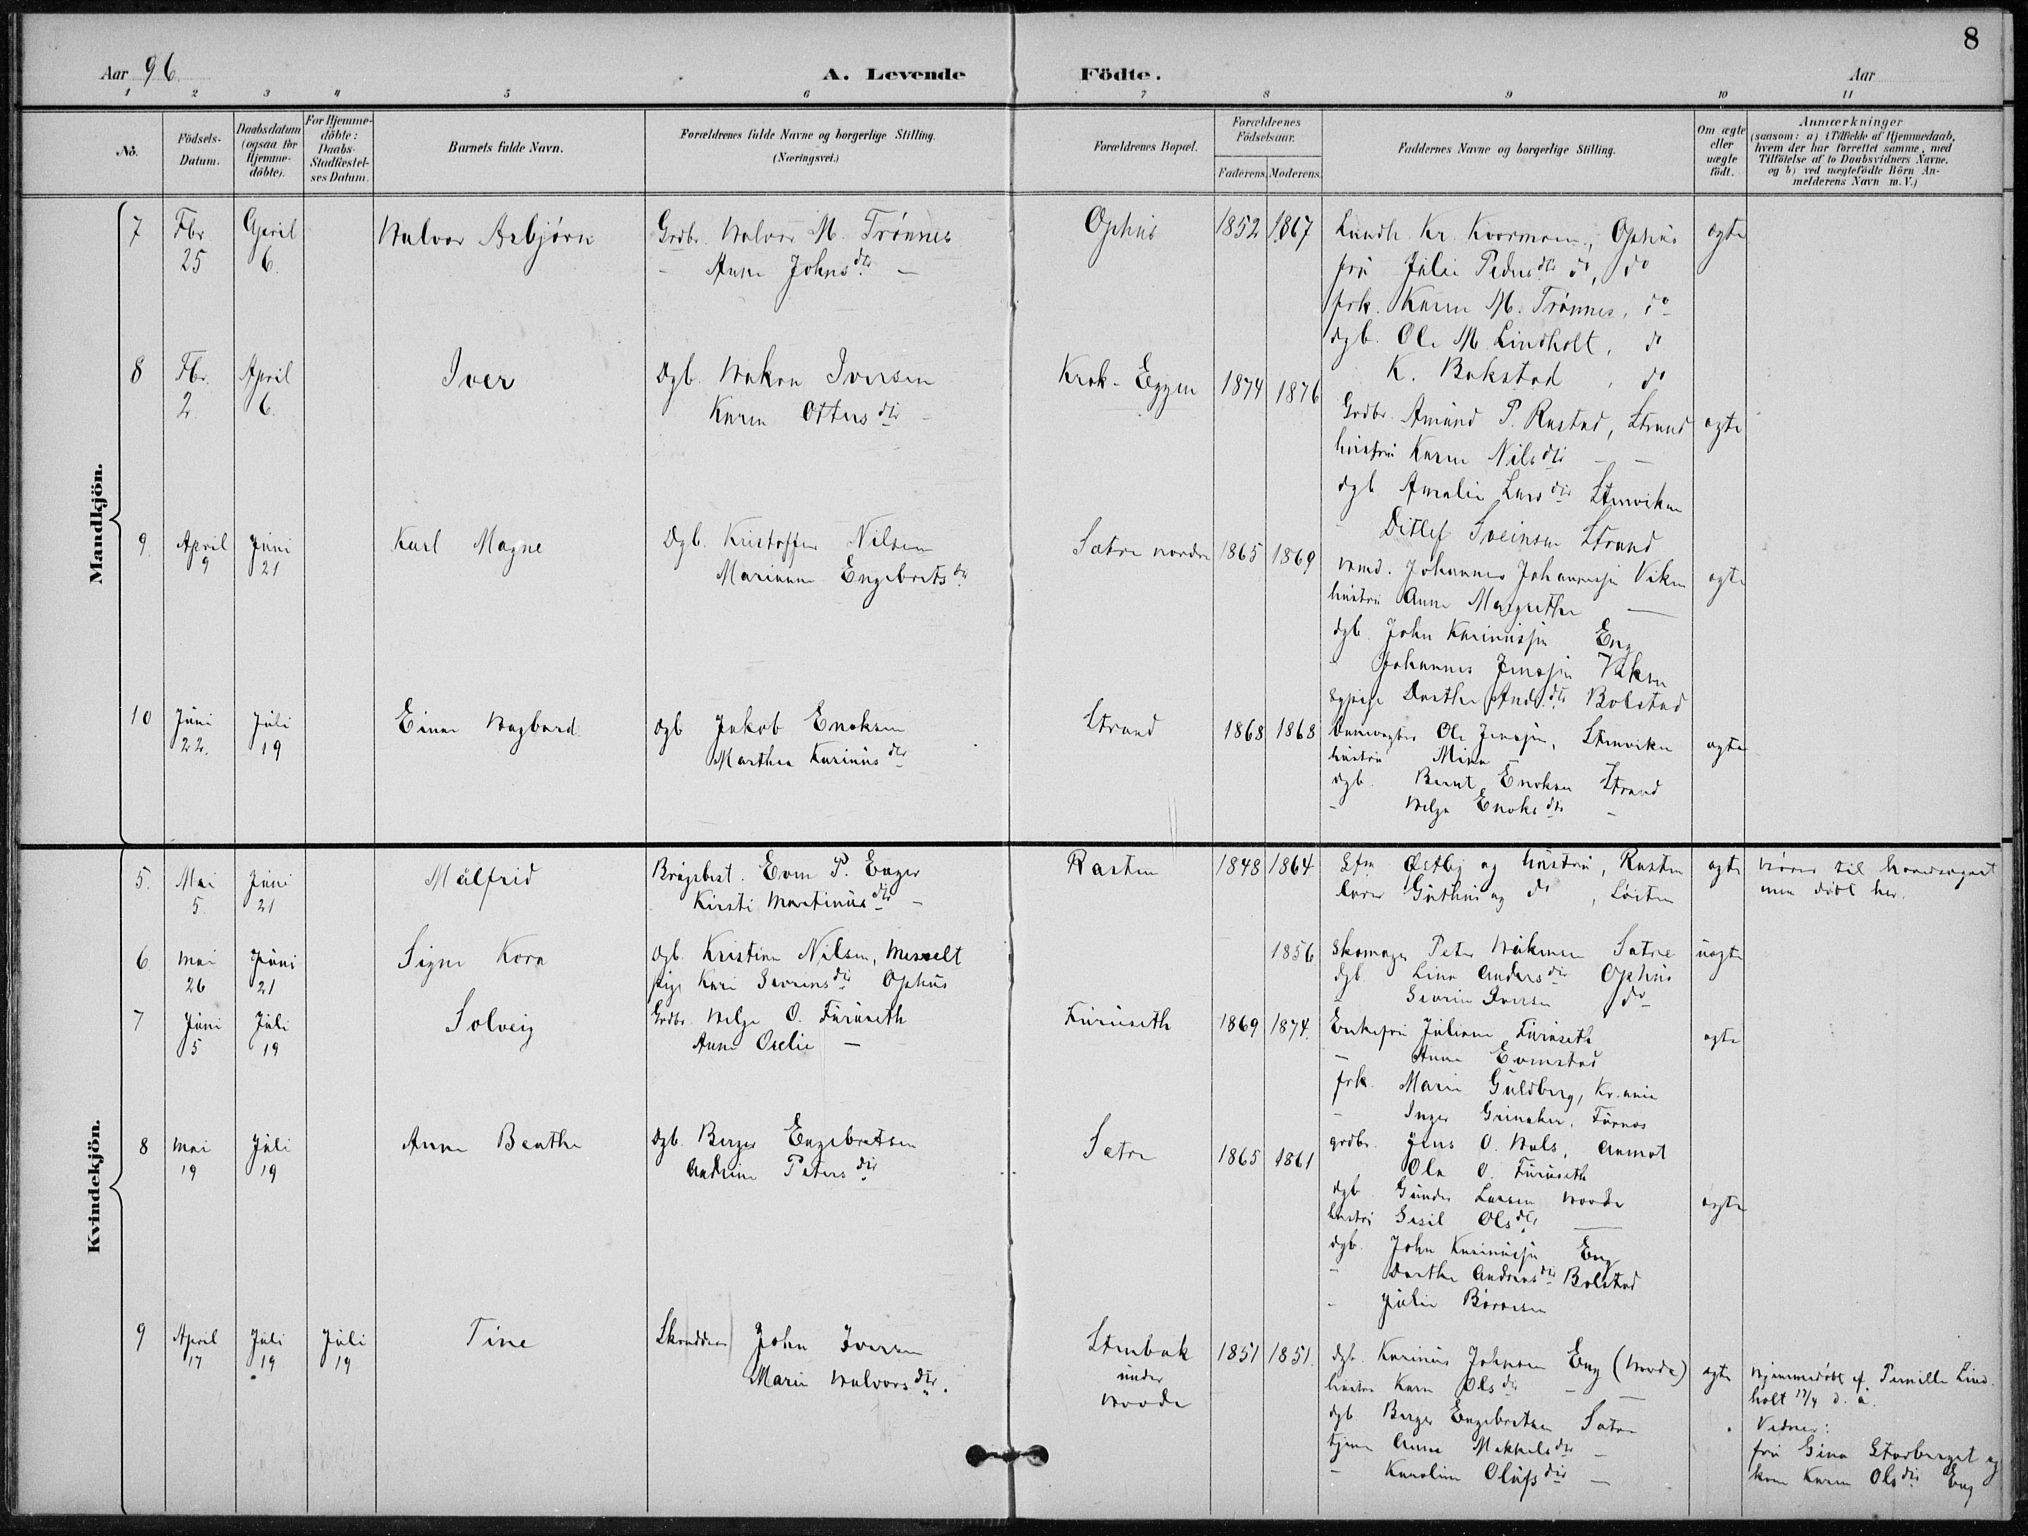 8
Aar 96. A. Levende Födte. Aar
1 2 3 4 5 6 7 8 9 10 11
No. Födsels-Datum. Daabsdatum (ogsaa for Hjemme-döbte). For Hjemme-döbte: Daabs-Stadfæstel-ses Datum. Barnets fulde Navn. Forældrenes fulde Navne og borgerlige Stilling. (Næringsvei.) Forældrenes Bopæl. Forældrenes Födselsaar. Faderens. Moderens. Faddernes Navne og borgerlige Stilling. Om ægte eller uægte födt. Anmærkninger (saasom: a) i Tilfælde af Hjemmedaab, hvem der har forrettet samme, med Tilföielse af to Daabsvidners Navne, og b) ved uægtefödte Börn An-melderens Navn m. V.)
Mandkjön.
7 Fbr. 25 April 6. Halvor Asbjørn
Grdbr. Halvor M. Trønnes
- Anne Johnsdtr -
Ophus 1852 1867
Landh. Kr. Koormoen, Ophus ægte
fru Julie Pedersdtr do, do
frk. Karen M. Trønnes, do
dgb. Ole M. Lindholt, do
K. Bakstad, do
8 Fbr. 2. April 6. Iver
dgb. Hakon Iversen
Karen Ottersdtr -
Krok-Eggen 1874 1876
Grdbr. Amund P. Rustad, Strand ægte
hustru Karen Nilsdtr - -
dgb Amalie Larsdtr Stenviken
Ditlef Sveinsen Strand
9 April 9 Juni 21 Karl Magne
Dgb. Kristoffer Nilsen
Marianne Engebretsdtr
Sætre nordre 1865 1869
Johannes Johannessen Viken ægte
hustru Anne Margrethe -
dgb. John Karinussen Eng
- Johannes Jensen Viken
Dorthe Andr.dtr Bolstad
10 Juni 22. Juli 19 Einar Hagbard
dgb Jakob Enoksen
Marthea Karinusdtr
Strand 1868 1868
Banevogter Ole Jensen, Stenviken ægte
hustru Mina -
dgb. Bernt Enoksen Strand
- Helga Enoksdtr -
Kvindekjön.
5. Mai 5 Juni 21 Målfrid
Brugsbest. Even P. Enger
Kirsti Martinusdtr -
Rasten 1848 1864
Stm. Østby og hustru, Rasten ægte
Lærer Guthus og do, Løiten
hører til hovedsognet
men døbt her.
6. Mai 26 Juni 21 Signe Kora
dgb. Kristian Nilsen, Messelt
pige Kari Severinsdtr Ophus
1856
Skomager Peter Håkensen Sætre uægte
dgb. Lina Andersdtr Ophus
- Severin Iversen do
7 Juni 5 Juli 19 Solveig
Grdbr. Helge O. Furuseth
Anne Oselie -
Furuseth 1869 1874.
Enkefru Juliane Furuseth ægte
- Anne Evenstad
frk. Marie Guldberg, Kr.ania
- Inger Grinaker, Furnes
grdbr. Jens O. Hols, Aamot
Ola O. Furuseth
8 Mai 19 Juli 19 Anne Benthe
dgb. Berger Engebretsen
Andrine Petersdtr
Sætre 1865 1861
dgb. Gunder Larsen Hovde ægte
hustru Sesil Olsdtr -
dgb. John Karinussen Eng
- Dorthe Andreasdtr Bolstad
- Julie Børresen
9 April 17 Juli 19 Juli 19 Tine
Skrædder John Iversen
Marie Halvorsdtr.
Stenbæk 1851 1851.
under
Hovde
dgb. Karinus Johnsen Eng (Hovde) ægte
hustru Karen Olsdtr - -
dgb. Berger Engebretsen Sætre
tjener Anne Mikkelsdtr -
- Karoline Olufsdtr -
Hjemmedøbt af Pernille Lind-
holt 17/4 d. å.
Vidner:
fru Gina Storberget og
kone Karen Olsdtr Eng